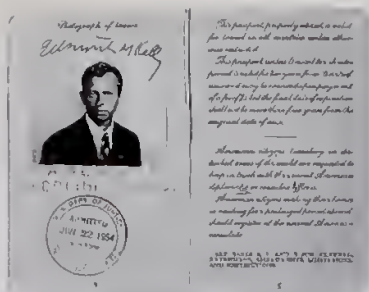 Photograph of bearer
U.S. DEPT. OF JUSTICE
ADMITTED
JUN 22 1954
This passport, properly visaed, is valid
for travel in all countries unless other-
wise restricted.
This passport, unless limited to a shorter
period, is valid for two years from its date of
issue and may be renewed upon payment
of a fee of $5 but the final date of expiration
shall not be more than four years from the
original date of issue.
American citizens traveling in dis-
turbed areas of the world are requested to
keep in touch with the nearest American
diplomatic or consular officers.
American citizens making their home
or residing for a prolonged period abroad
should register at the nearest American
consulate.
SEE PAGES 6, 7 AND 8 FOR RENEWAL,
EXTENSIONS, AMENDMENTS, LIMITATIONS,
AND RESTRICTIONS.